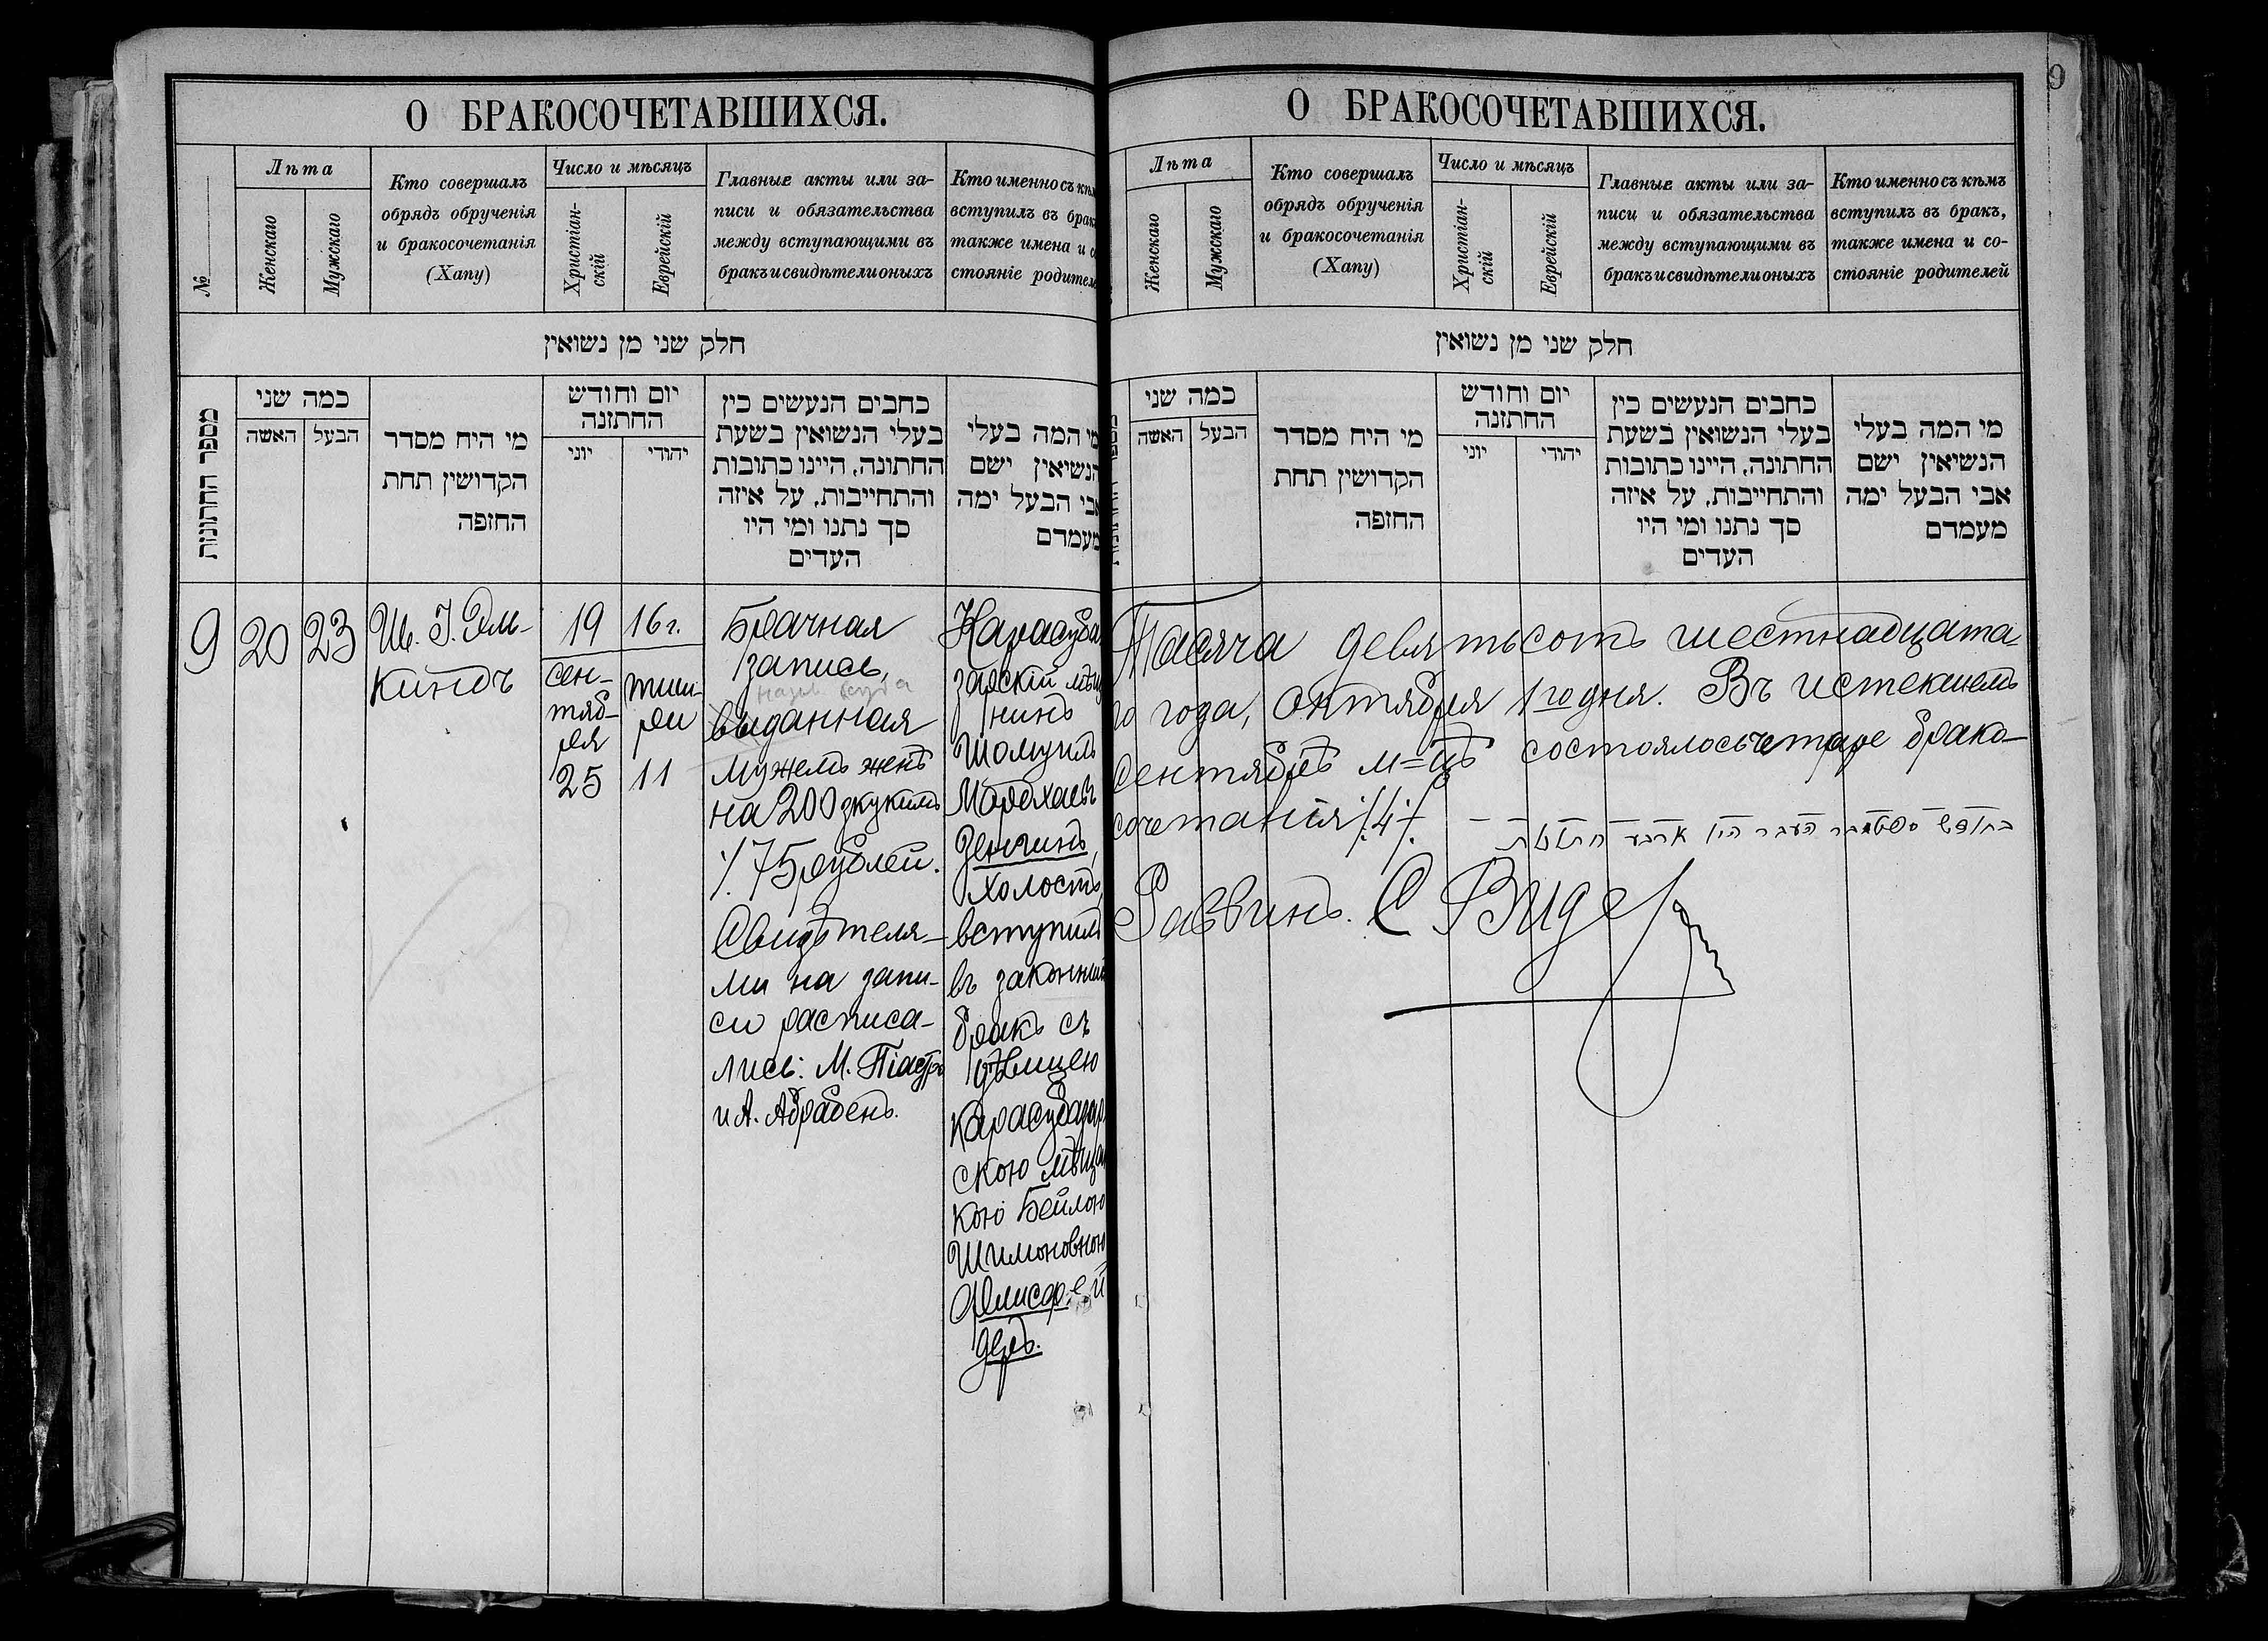 О БРАКОСОЧЕТАВШИХСЯ.
№
Лѣта
Женскаго
Мужскаго
Кто совершалъ
обрядъ обрученія
и бракосочетанія
(Хапу)
Число и мѣсяцъ
Христіан-
скій
Еврейскій
Главные акты или за-
писи и обязательства
между вступающими въ
бракъ и свидѣтели оныхъ
Кто именно съ кѣм
вступилъ въ брак
также имена и с
стояніе родител
חלק שני מן נשואין
מספר החתונות
כמה שני
האשה
הבעל
מי היח מסדר
הקדושין תחת
החזפה
יום וחודש
החתזנה
יוני
יהודי
כחבים הנעשים כין
בעלי הנשואין בשעת
החתונה, היינו כתובות
והתחייבות, על איזה
סך נתנו ומי היו
העדים
מי המה בעלי
הנשיאין ישם
אבי הבעל ימה
מעמדם
9
20
23
Ш. І. Эль-
киндъ
19
сен-
тяб-
ря
25
16 г.
тиш-
ри
11
Брачная
запись,
выданная
мужемъ женѣ
на 200 зкукимъ
75 рублей.
Свидѣтеля-
ми на запи-
си расписа-
лись: М. Піастро
и А. Абрабенъ.
Карасуба
зарскій мѣщ
нинъ
Шомуилъ
Мордхаевъ
Зенгинъ,
холостъ,
вступилъ
въ законный
бракъ съ
дѣвицею
Карасубазар
скою мѣщан
кою Бейлою
Шимоновною
деръ.
О БРАКОСОЧЕТАВШИХСЯ.
9
Лѣта
Женскаго
Мужскаго
Кто совершалъ
обрядъ обрученія
и бракосочетанія
(Хапу)
Число и мѣсяцъ
Христіан-
скій
Еврейскій
Главные акты или за-
писи и обязательства
между вступающими въ
бракъ и свидѣтели оныхъ
Кто именно съ кѣмъ
вступилъ въ бракъ,
также имена и со-
стояніе родителей
חלק שני מן נשואין
כמה שני
האשה
הבעל
מי היח מסדר
הקדושין תחת
החזפה
יום וחודש
החתזנה
יוני
יהודי
כחבים הנעשים כין
בעלי הנשואין בשעת
החתונה, היינו כתובות
והתחייבות, על איזה
סך נתנו ומי היו
העדים
מי המה בעלי
הנשיאין ישם
אבי הבעל ימה
מעמדם
Тысяча девятьсотъ шестнадцата-
го года, Октября 1го дня. Въ истекшемъ
Сентябрѣ м=цѣ состоялось четыре брако-
сочетанія /4/.
בחודש ספטאבר העבר היו ארבע חתונות
Раввинъ. С Видер